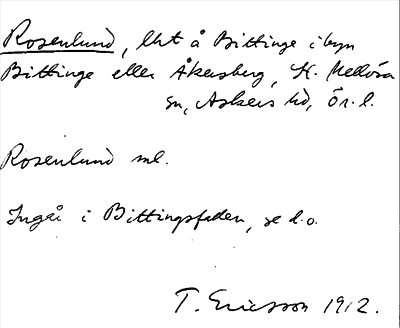 Rosenlund, lht å Bittinge i byn
Bittinge eller Åkersberg, St. Mellösa
sn, Askers hd, Ör. l.
Rosenlund ml.
Ingå i Bittingsfaden, se d.o.
T. Ericsson 1912.